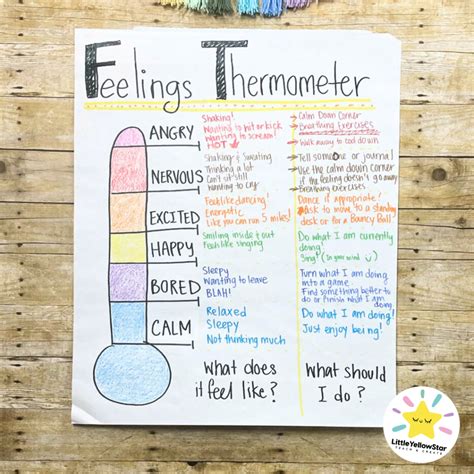 Feelings Thermometer
ANGRY
Shaking!
Wanting to hit or kick
Wanting to scream!
HOT
Calm Down Corner
Breathing Exercises
Walk away to cool down
NERVOUS
Shaking & Sweating
Thinking a lot
Can't sit still
Wanting to cry
Tell someone or journal
Use the calm down corner
if the feeling doesn't go away
Breathing exercises
EXCITED
Feels like dancing!
Energetic
like you can run 5 miles!
Dance if appropriate!
Ask to move to a standing
desk or for a Bouncy Ball
HAPPY
Smiling inside & out
Feels like singing
Do what I am currently
doing!
Sing! (in your mind)
BORED
Sleepy
Wanting to leave
BLAH!
Turn what I am doing
into a game
Find something better to
do or finish what I am
doing.
CALM
Relaxed
Sleepy
Not thinking much
Do what I am doing!
Just enjoy being!
What does
it feel like?
What should
I do?
LittleYellowStar
TEACH & CREATE